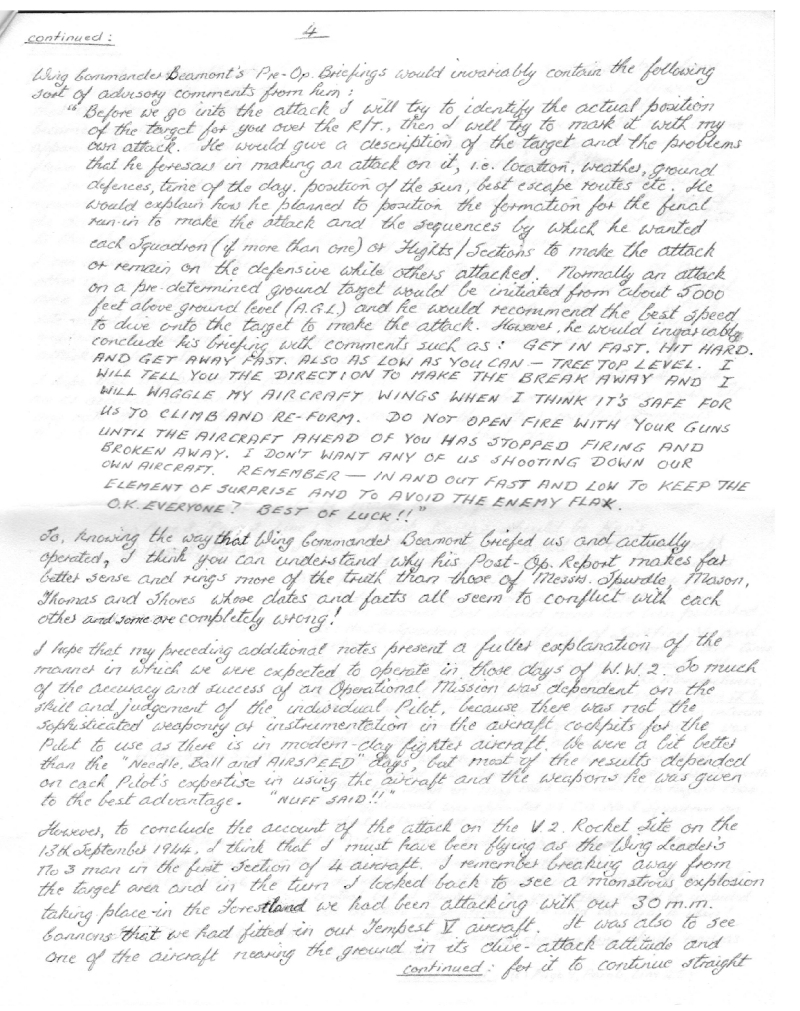 continued:
4
Wing Commander Beamont's Pre-Op. Briefings would invariably contain the following
sort of advisory comments from him:
"Before we go into the attack I will try to identify the actual position
of the target for you over the R/T., then I will try to mark it with my
own attack. He would give a description of the target and the problems
that he foresaw in making an attack on it, i.e. location, weather, ground
defences, time of the day, position of the sun, best escape routes etc. He
would explain how he planned to position the formation for the final
run-in to make the attack and the sequences by which he wanted
each Squadron (if more than one) or Flights/Sections to make the attack
or remain on the defensive while others attacked. Normally an attack
on a pre-determined ground target would be initiated from about 5000
feet above ground level (A.G.L) and he would recommend the best speed
to dive onto the target to make the attack. However, he would invariably
conclude his briefing with comments such as: GET IN FAST. HIT HARD.
AND GET AWAY FAST. ALSO AS LOW AS YOU CAN — TREE TOP LEVEL. I
WILL TELL YOU THE DIRECTION TO MAKE THE BREAK AWAY AND I
WILL WAGGLE MY AIRCRAFT WINGS WHEN I THINK IT'S SAFE FOR
US TO CLIMB AND RE-FORM. DO NOT OPEN FIRE WITH YOUR GUNS
UNTIL THE AIRCRAFT AHEAD OF YOU HAS STOPPED FIRING AND
BROKEN AWAY. I DON'T WANT ANY OF US SHOOTING DOWN OUR
OWN AIRCRAFT. REMEMBER — IN AND OUT FAST AND LOW TO KEEP THE
ELEMENT OF SURPRISE AND TO AVOID THE ENEMY FLAK.
O.K. EVERYONE? BEST OF LUCK!!"
So, knowing the way that Wing Commander Beamont briefed us and actually
operated, I think you can understand why his Post-Op. Report makes far
better sense and rings more of the truth than those of Messrs. Spurdle, Mason,
Thomas and Shores whose dates and facts all seem to conflict with each
other and some are completely wrong!
I hope that my preceding additional notes present a fuller explanation of the
manner in which we were expected to operate in those days of W.W.2. So much
of the accuracy and success of an Operational Mission was dependent on the
skill and judgement of the individual Pilot, because there was not the
sophisticated weaponry or instrumentation in the aircraft cockpits for the
Pilot to use as there is in modern-day fighter aircraft. We were a bit better
than the "Needle, Ball and AIRSPEED" days, but most of the results depended
on each Pilot's expertise in using the aircraft and the weapons he was given
to the best advantage. "NUFF SAID!!"
However, to conclude the account of the attack on the V.2. Rocket Site on the
13th September 1944, I think that I must have been flying as the Wing Leader's
No 3 man in the first Section of 4 aircraft. I remember breaking away from
the target area and in the turn I looked back to see a monstrous explosion
taking place in the Forestland we had been attacking with our 30 m.m.
Cannons that we had fitted in our Tempest V aircraft. It was also to see
one of the aircraft nearing the ground in its dive-attack attitude and
continued: for it to continue straight